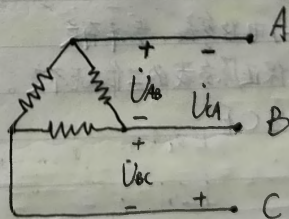 A
+ -
U̇AB U̇CA
- B
+
U̇BC
- + C